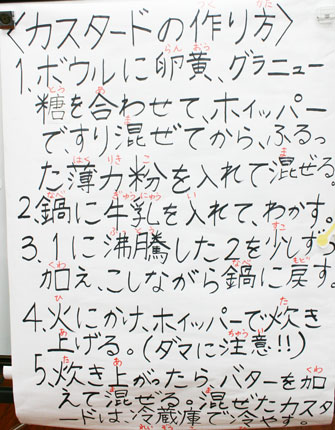 〈カスタードの作り方〉
1.ボウルに卵黄、グラニュー
糖を合わせて、ホイッパー
で、すり混ぜてから、ふるっ
た薄力粉を入れて混ぜる
2.鍋に牛乳を入れて、わかす。
3.1に沸騰した2を少しずつ
加え、こしながら鍋に戻す。
4.火にかけ、ホイッパーで炊き
上げる。(ダマに注意!!)
5.炊き上がったら、バターを加
えて混ぜる。混ぜたカスタ
ードは、冷蔵庫で冷やす。